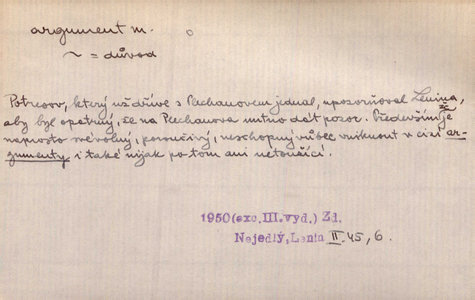 argument m.
~ = důvod
Potresov, který už dříve s Plechanovem jednal, upozorňoval Lenina,
aby byl opatrný, že na Plechanova nutno dát pozor. Především je
že
naprosto svévolný, poroučivý, neschopný vůbec vniknout v cizí ar-
gumenty i také nijak po tom ani netoužící.
1950 (exc. III. vyd.) Zd.
Nejedlý, Lenin II. 45, 6.